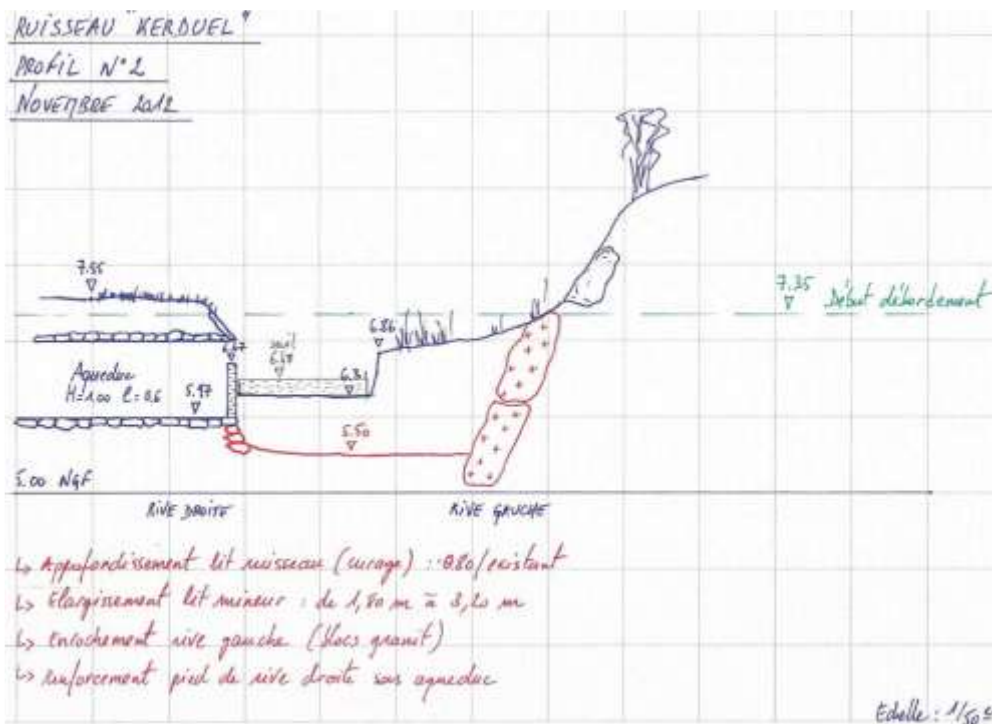 RUISSEAU "KERDUEL"
PROFIL N°2
NOVEMBRE 2012
7.35 Début débordement
7.55
6.86
6.47
seuil
6.47
6.31
Aqueduc
H=1.00 l=0.6
5.97
5.50
5.00 NGF
RIVE DROITE
RIVE GAUCHE
↳ Approfondissement lit ruisseau (curage) : 0.80/existant
↳ Elargissement lit mineur : de 1,80 m à 3,20 m
↳ Enrochement rive gauche (blocs granit)
↳ Renforcement pied de rive droite sous aqueduc
Echelle : 1/50e